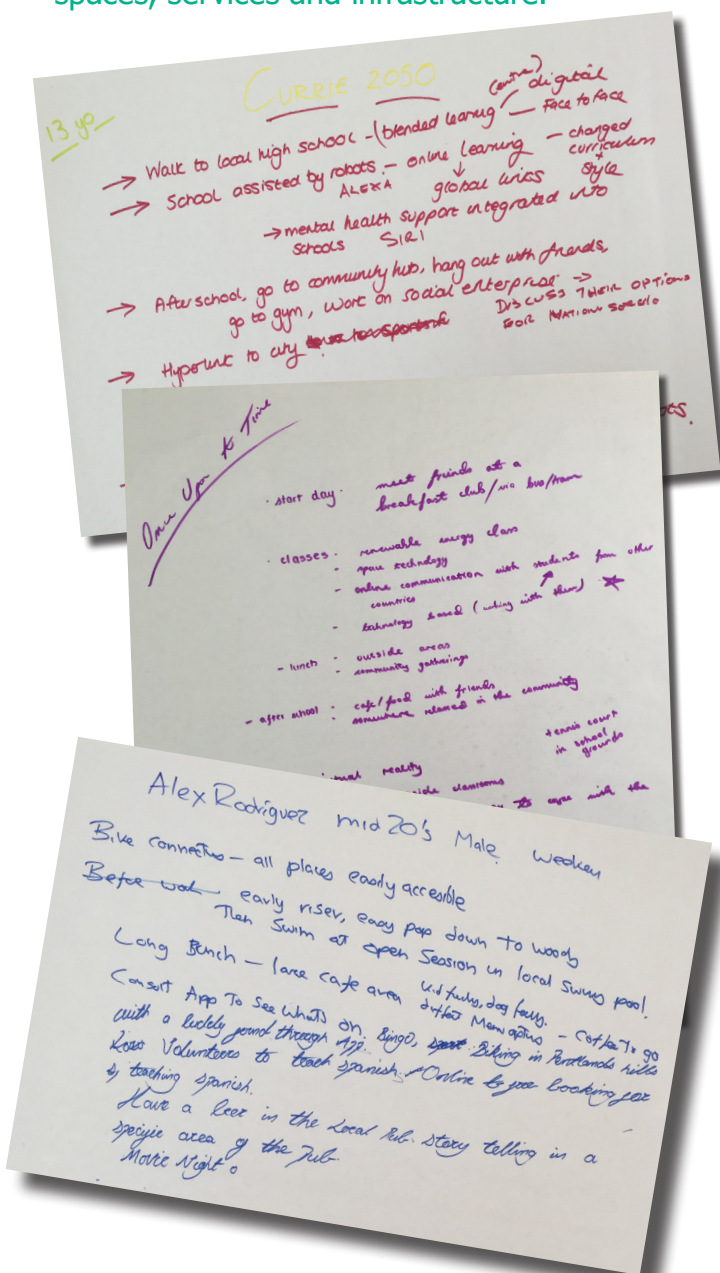 spaces, services and infrastructure.
CURRIE 2050
13 yo
(online) digital
→ Walk to local high school - (blended learnig — Face to Face
→ School assisted by robots. - online learning — changed
curriculum
+
style
ALEXA global links
→ mental health support integrated into
schools SIRI
→ After school, go to community hub, hang out with friends,
go to gym, work on social enterprise →
DISCUSS THEIR OPTIONS
FOR
→ Hyperlink to city
Once Upon A Time
· start day · meet friends at a
breakfast club/via bus/tram
· classes - renewable energy class
- space technology
- online communication with students from other
countries
- technology based (working with them)
- lunch - outside areas
- community gatherings
- after school : cafe/food with friends
somewhere relaxed in the community
tennis court
in school
grounds
reality
classrooms
with the
Alex Rodriguez mid 20's Male.
Bike connections — all places easily accesible
Before work early riser, easy pop down to woods
Then Swim at open Session in local pool.
Long Bench — large cafe area
Kid , dog
Menu options - Coffee To go
Consult App To See What's on. Bingo, Biking in Pentlands hills
with a found through App.
Volunteers to teach Spanish. Online booking for
teaching spanish.
Have a beer in the Local Pub. Story telling in a
specific area of the Pub.
Movie Night.